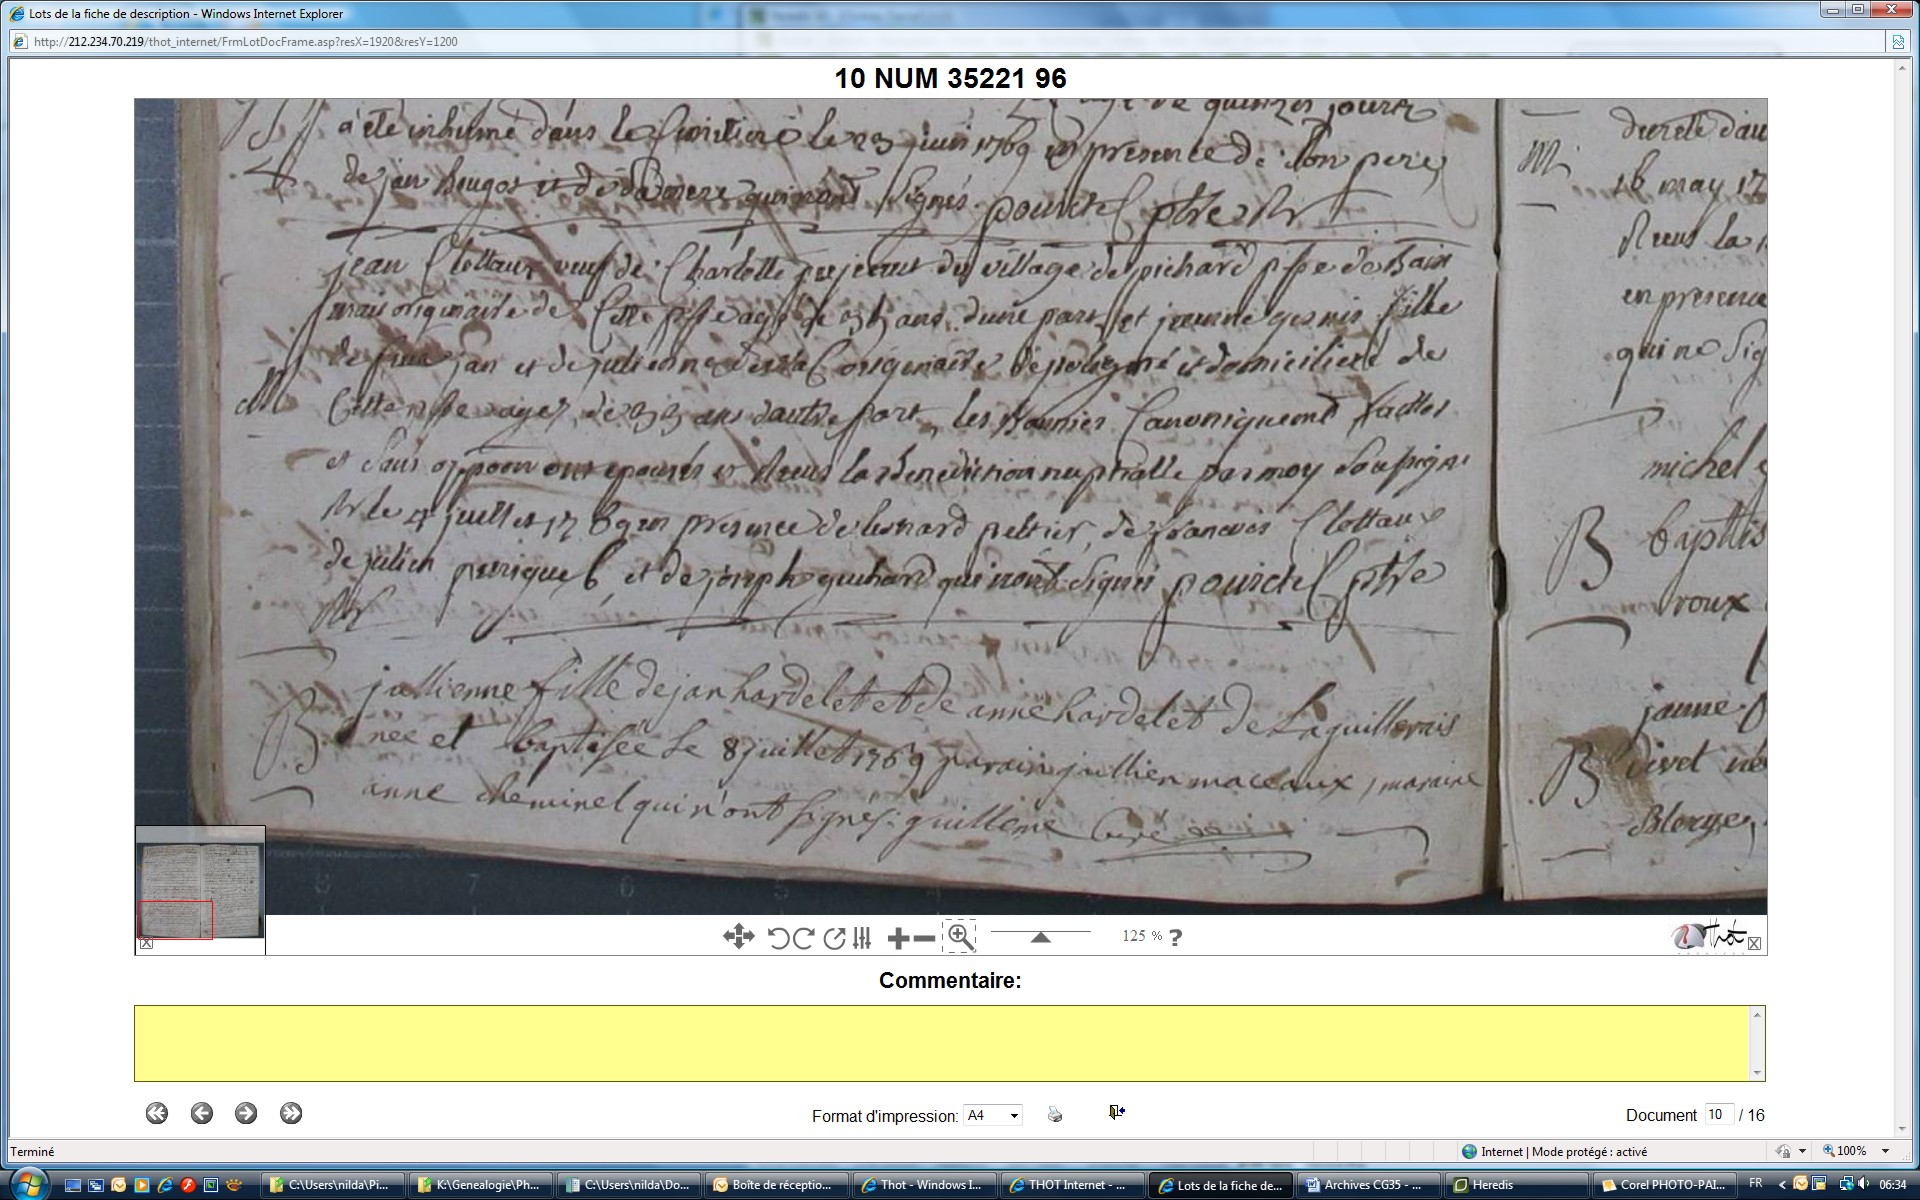 Lots de la fiche de description - Windows Internet Explorer
http://212.234.70.219/thot_internet/FrmLotDocFrame.asp?resX=1920&resY=1200
10 NUM 35221 96
de quinzes jours
a été inhumé dans le le 23 juin 1769 en presence de son pere,
de jan et de qui n'ont signés. pourchel ptre Rr
jean Clottaux veuf de Charlotte du village de pichard psse de Bain
mais originaire de Cette psse agé de 35 ans d'une part, et jeanne fille
de feu jan et de julienne originaire de poligné et domiciliere de
M Cette psse agez de 33 ans d'autre part, les Bannies Canoniquemt faittes
et sans oppoon ont epousés et Receus la benediction nuptialle par moy Soussigné
Rr le 4 juillet 1769 en presence de leonard peltier, de francois Clottaux
de julien perigues, et de joseph guihard qui n'ont signés pourchel ptre
Rr
jullienne fille de jan hardelet et de anne hardelet de Laguillerais
B née et baptisée le 8 juillet 1769 parain jullien maceaux, maraine
anne cheminel qui n'ont signés: guilleme Curé
M
16 may 17
Receus la
en presence
qui ne sig
michel
B baptis
roux
janne
B divet né
8
7
6
5
Thot
125 % ?
Commentaire:
Format d'impression: A4
Document 10 / 16
Terminé
Internet | Mode protégé : activé
100%
C:\Users\nilda\Pi...
K:\Genealogie\Ph...
C:\Users\nilda\Do...
Boîte de réceptio...
Thot - Windows I...
THOT Internet - ...
Lots de la fiche de...
Archives CG35 - ...
Heredis
Corel PHOTO-PAI...
FR
06:34